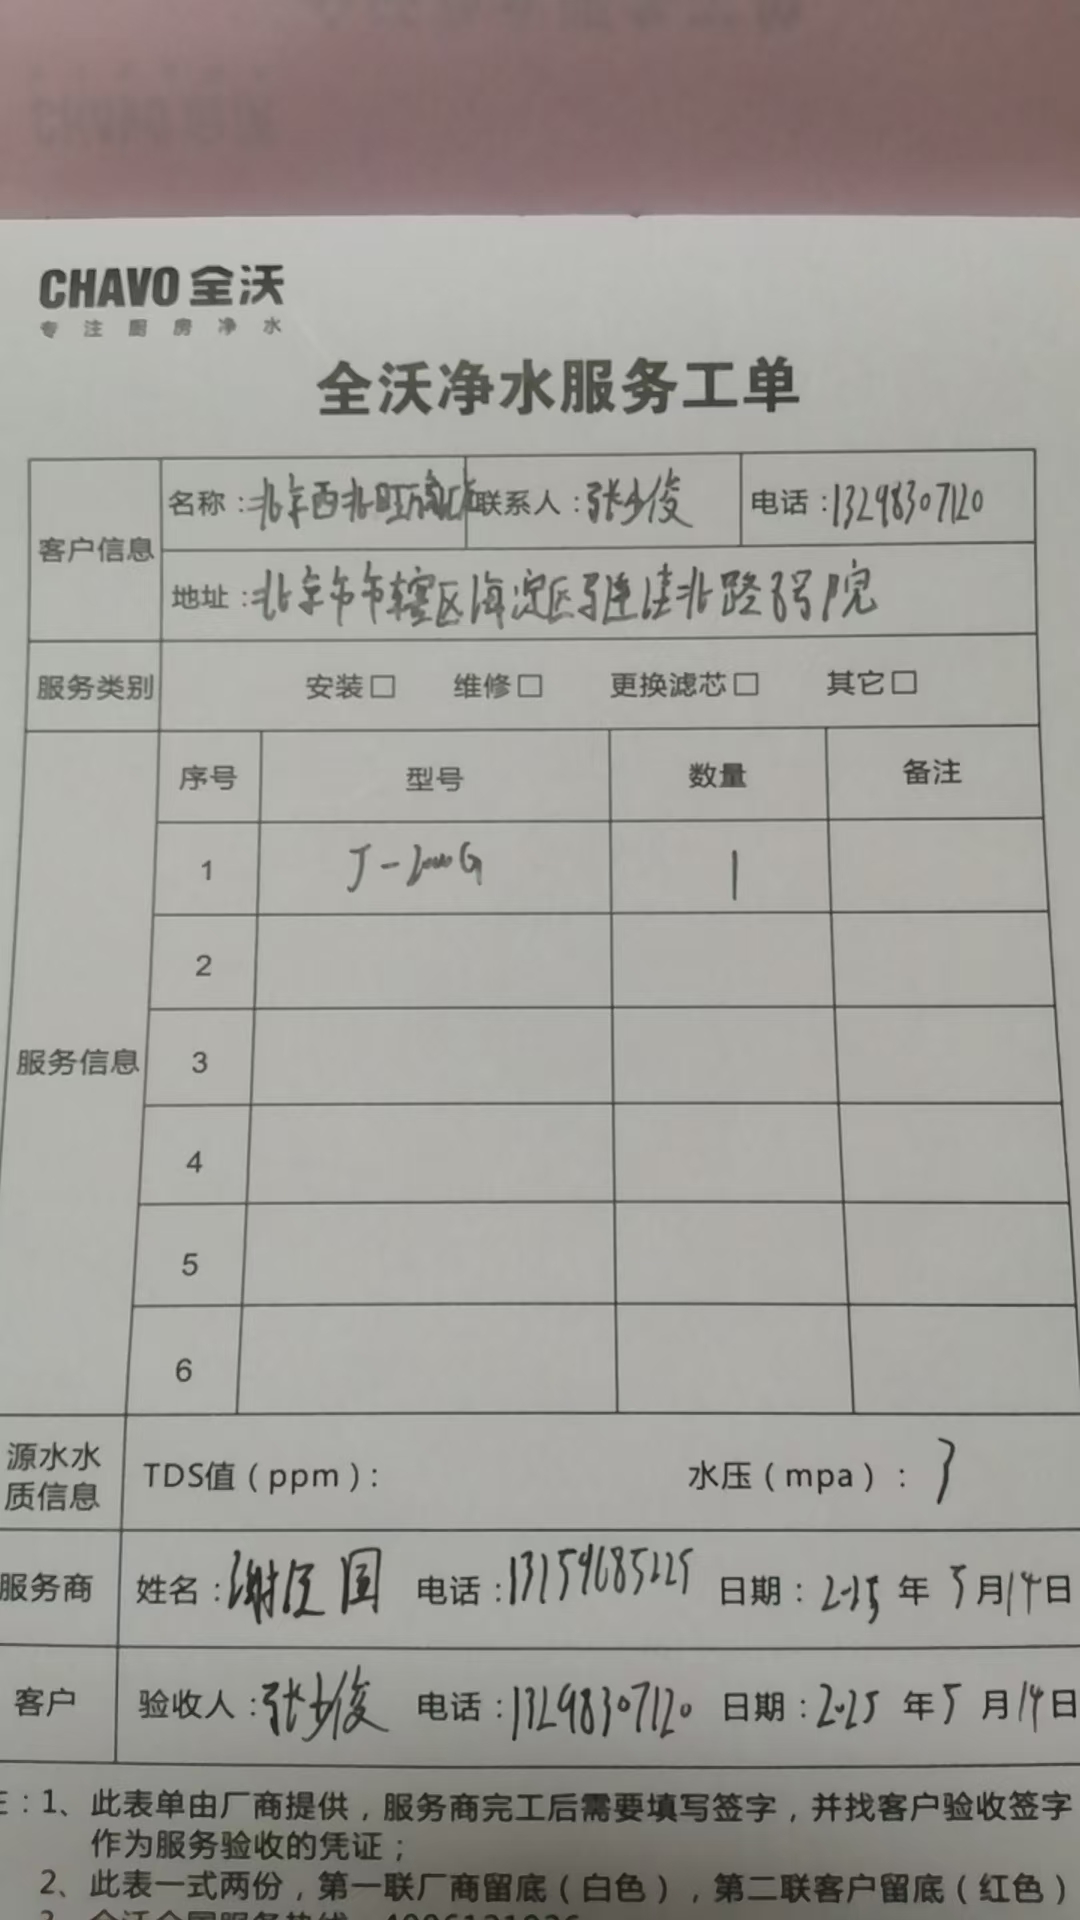 CHAVO 全沃
专注厨房净水
全沃净水服务工单
客户信息
名称：北京西北旺 联系人：张少俊 电话：13298307120
地址：北京市市辖区海淀区 北路 号院
服务类别 安装□ 维修□ 更换滤芯□ 其它□
服务信息
序号 型号 数量 备注
1 J-2000G 1
2
3
4
5
6
源水水质信息 TDS值（ppm）： 水压（mpa）：3
服务商 姓名：谢 国 电话：13159685225 日期：2025年5月14日
客户 验收人：张少俊 电话：13298307120 日期：2025年5月14日
：1、此表单由厂商提供，服务商完工后需要填写签字，并找客户验收签字
作为服务验收的凭证；
2、此表一式两份，第一联厂商留底（白色），第二联客户留底（红色）